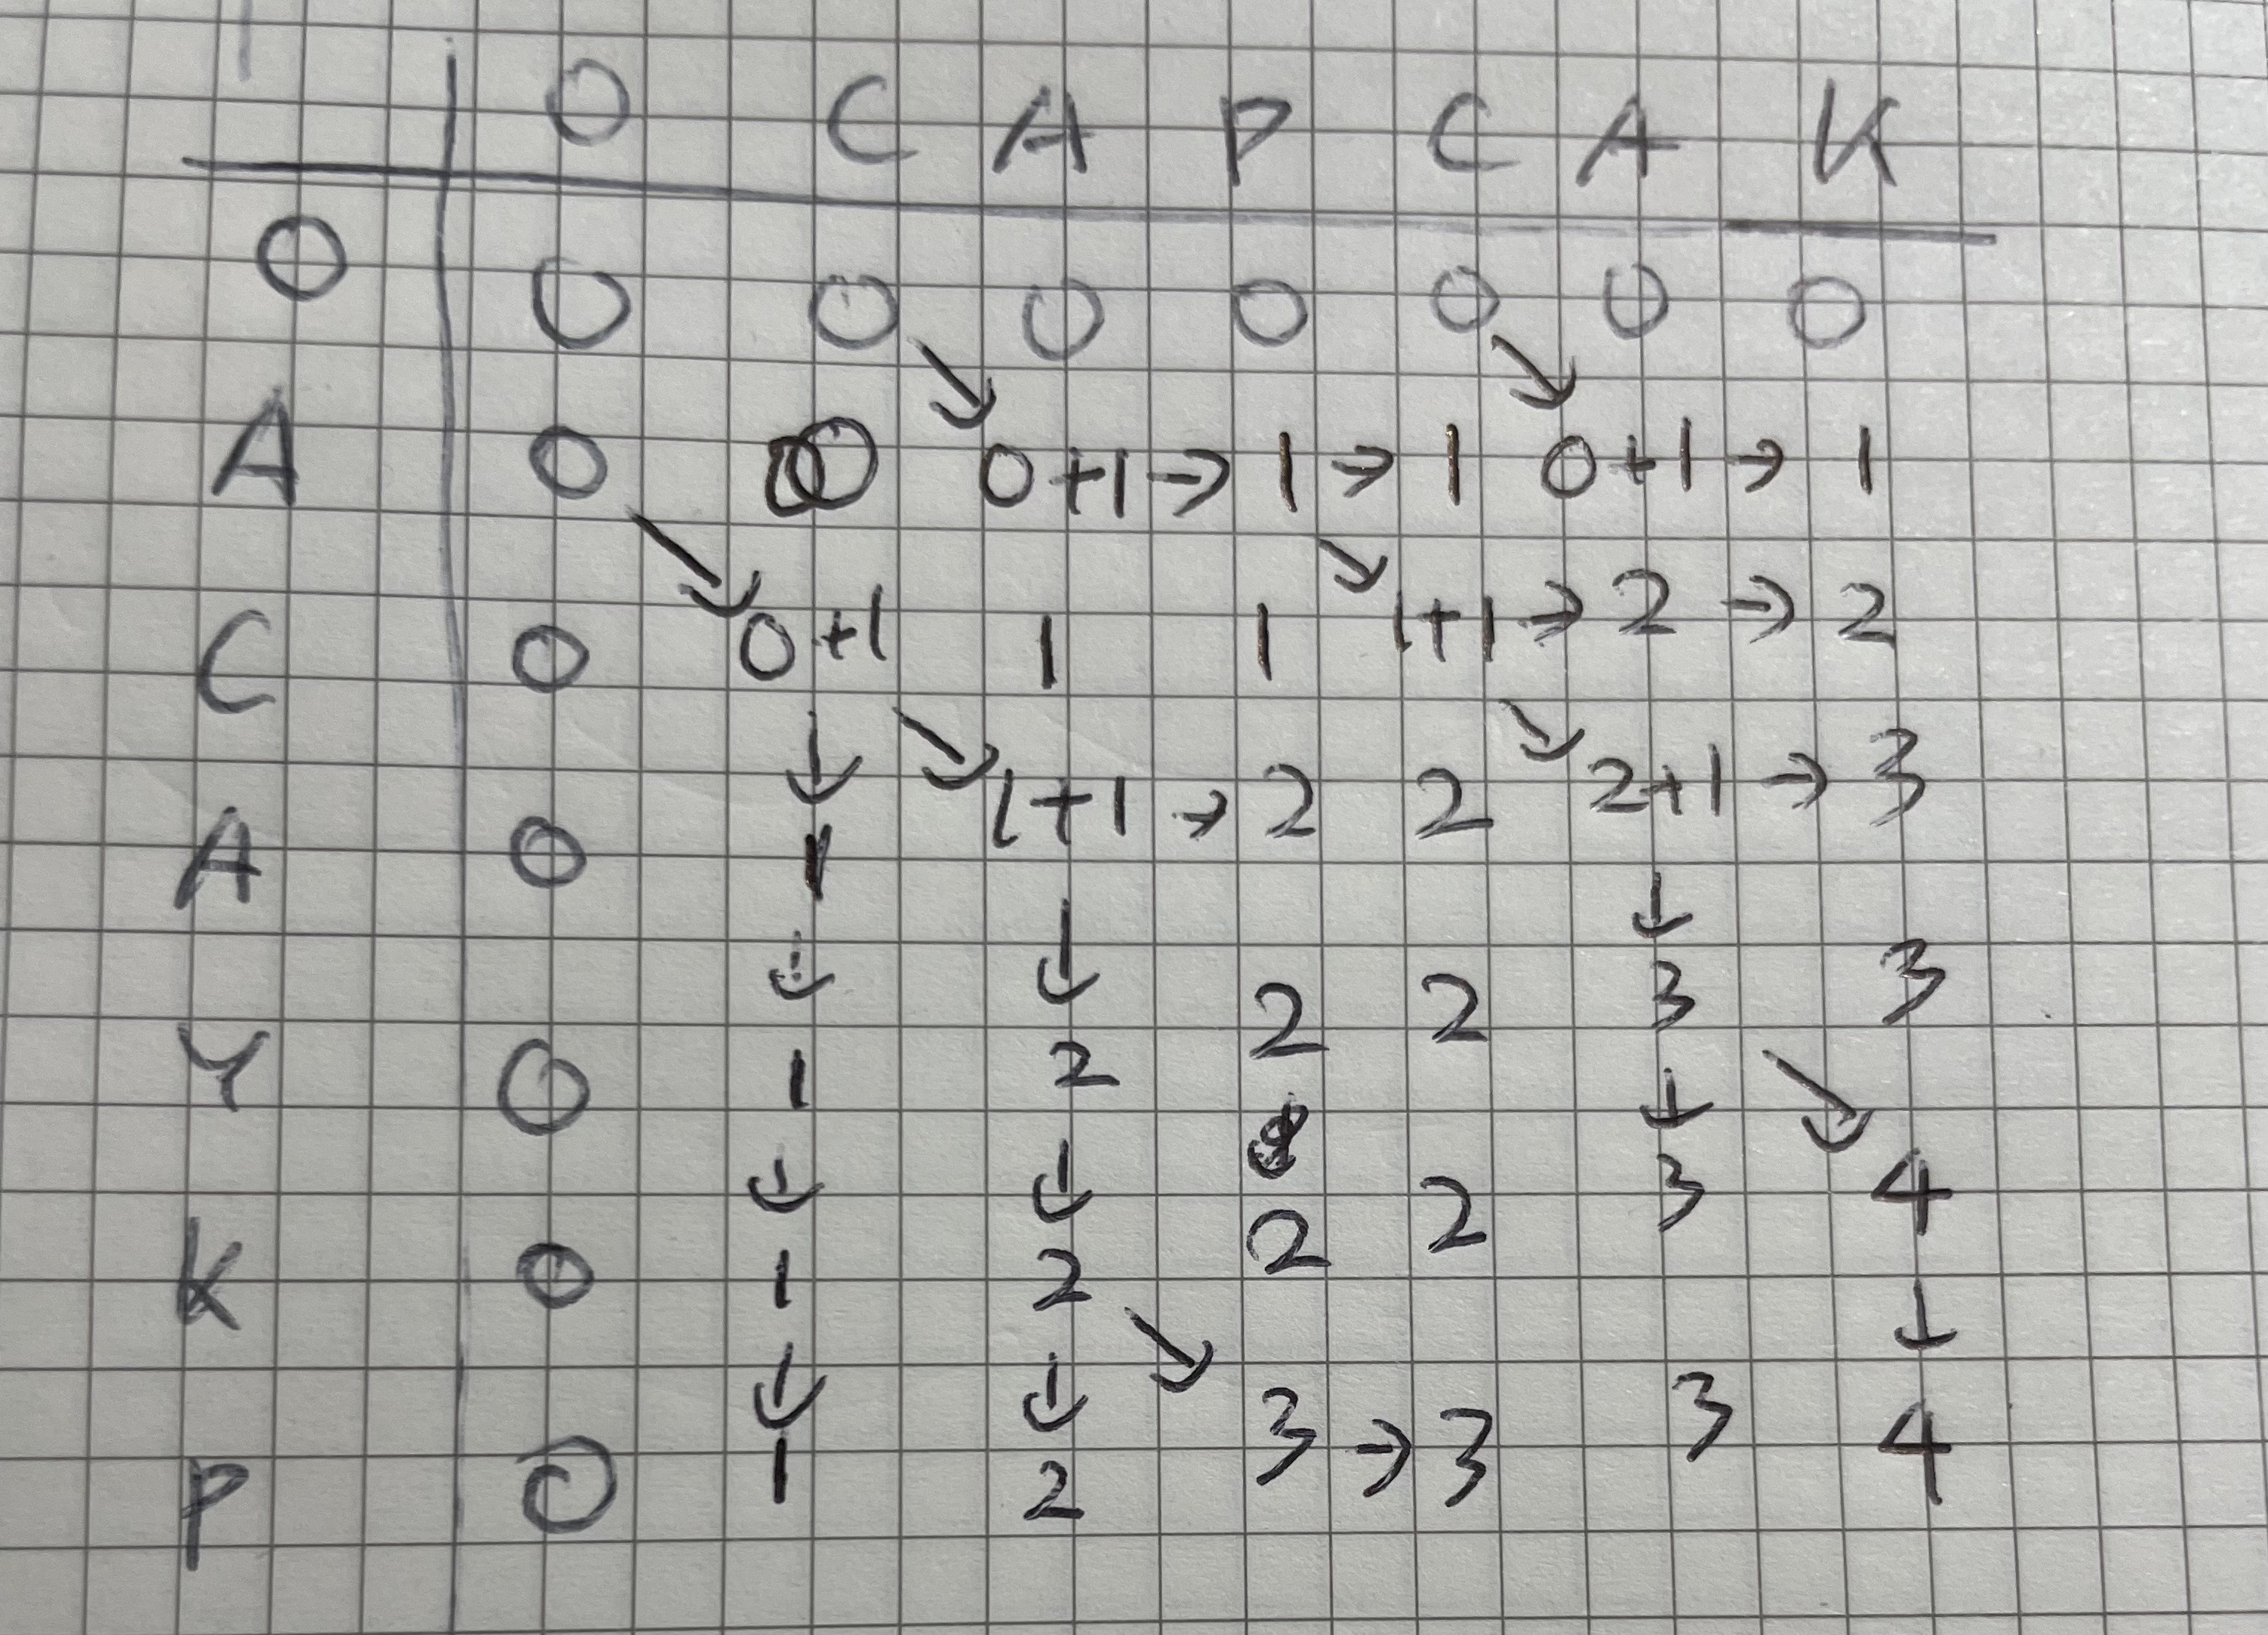 0 C A P C A K
0 0 0 0 0 0 0 0
A 0 0 0+1 → 1 → 1 0+1 → 1
C 0 0+1 1 1 1+1 → 2 → 2
A 0 1 1+1 → 2 2 2+1 → 3
Y 0 1 2 2 2 3 3
K 0 1 2 2 2 3 4
P 0 1 2 3 → 3 3 4